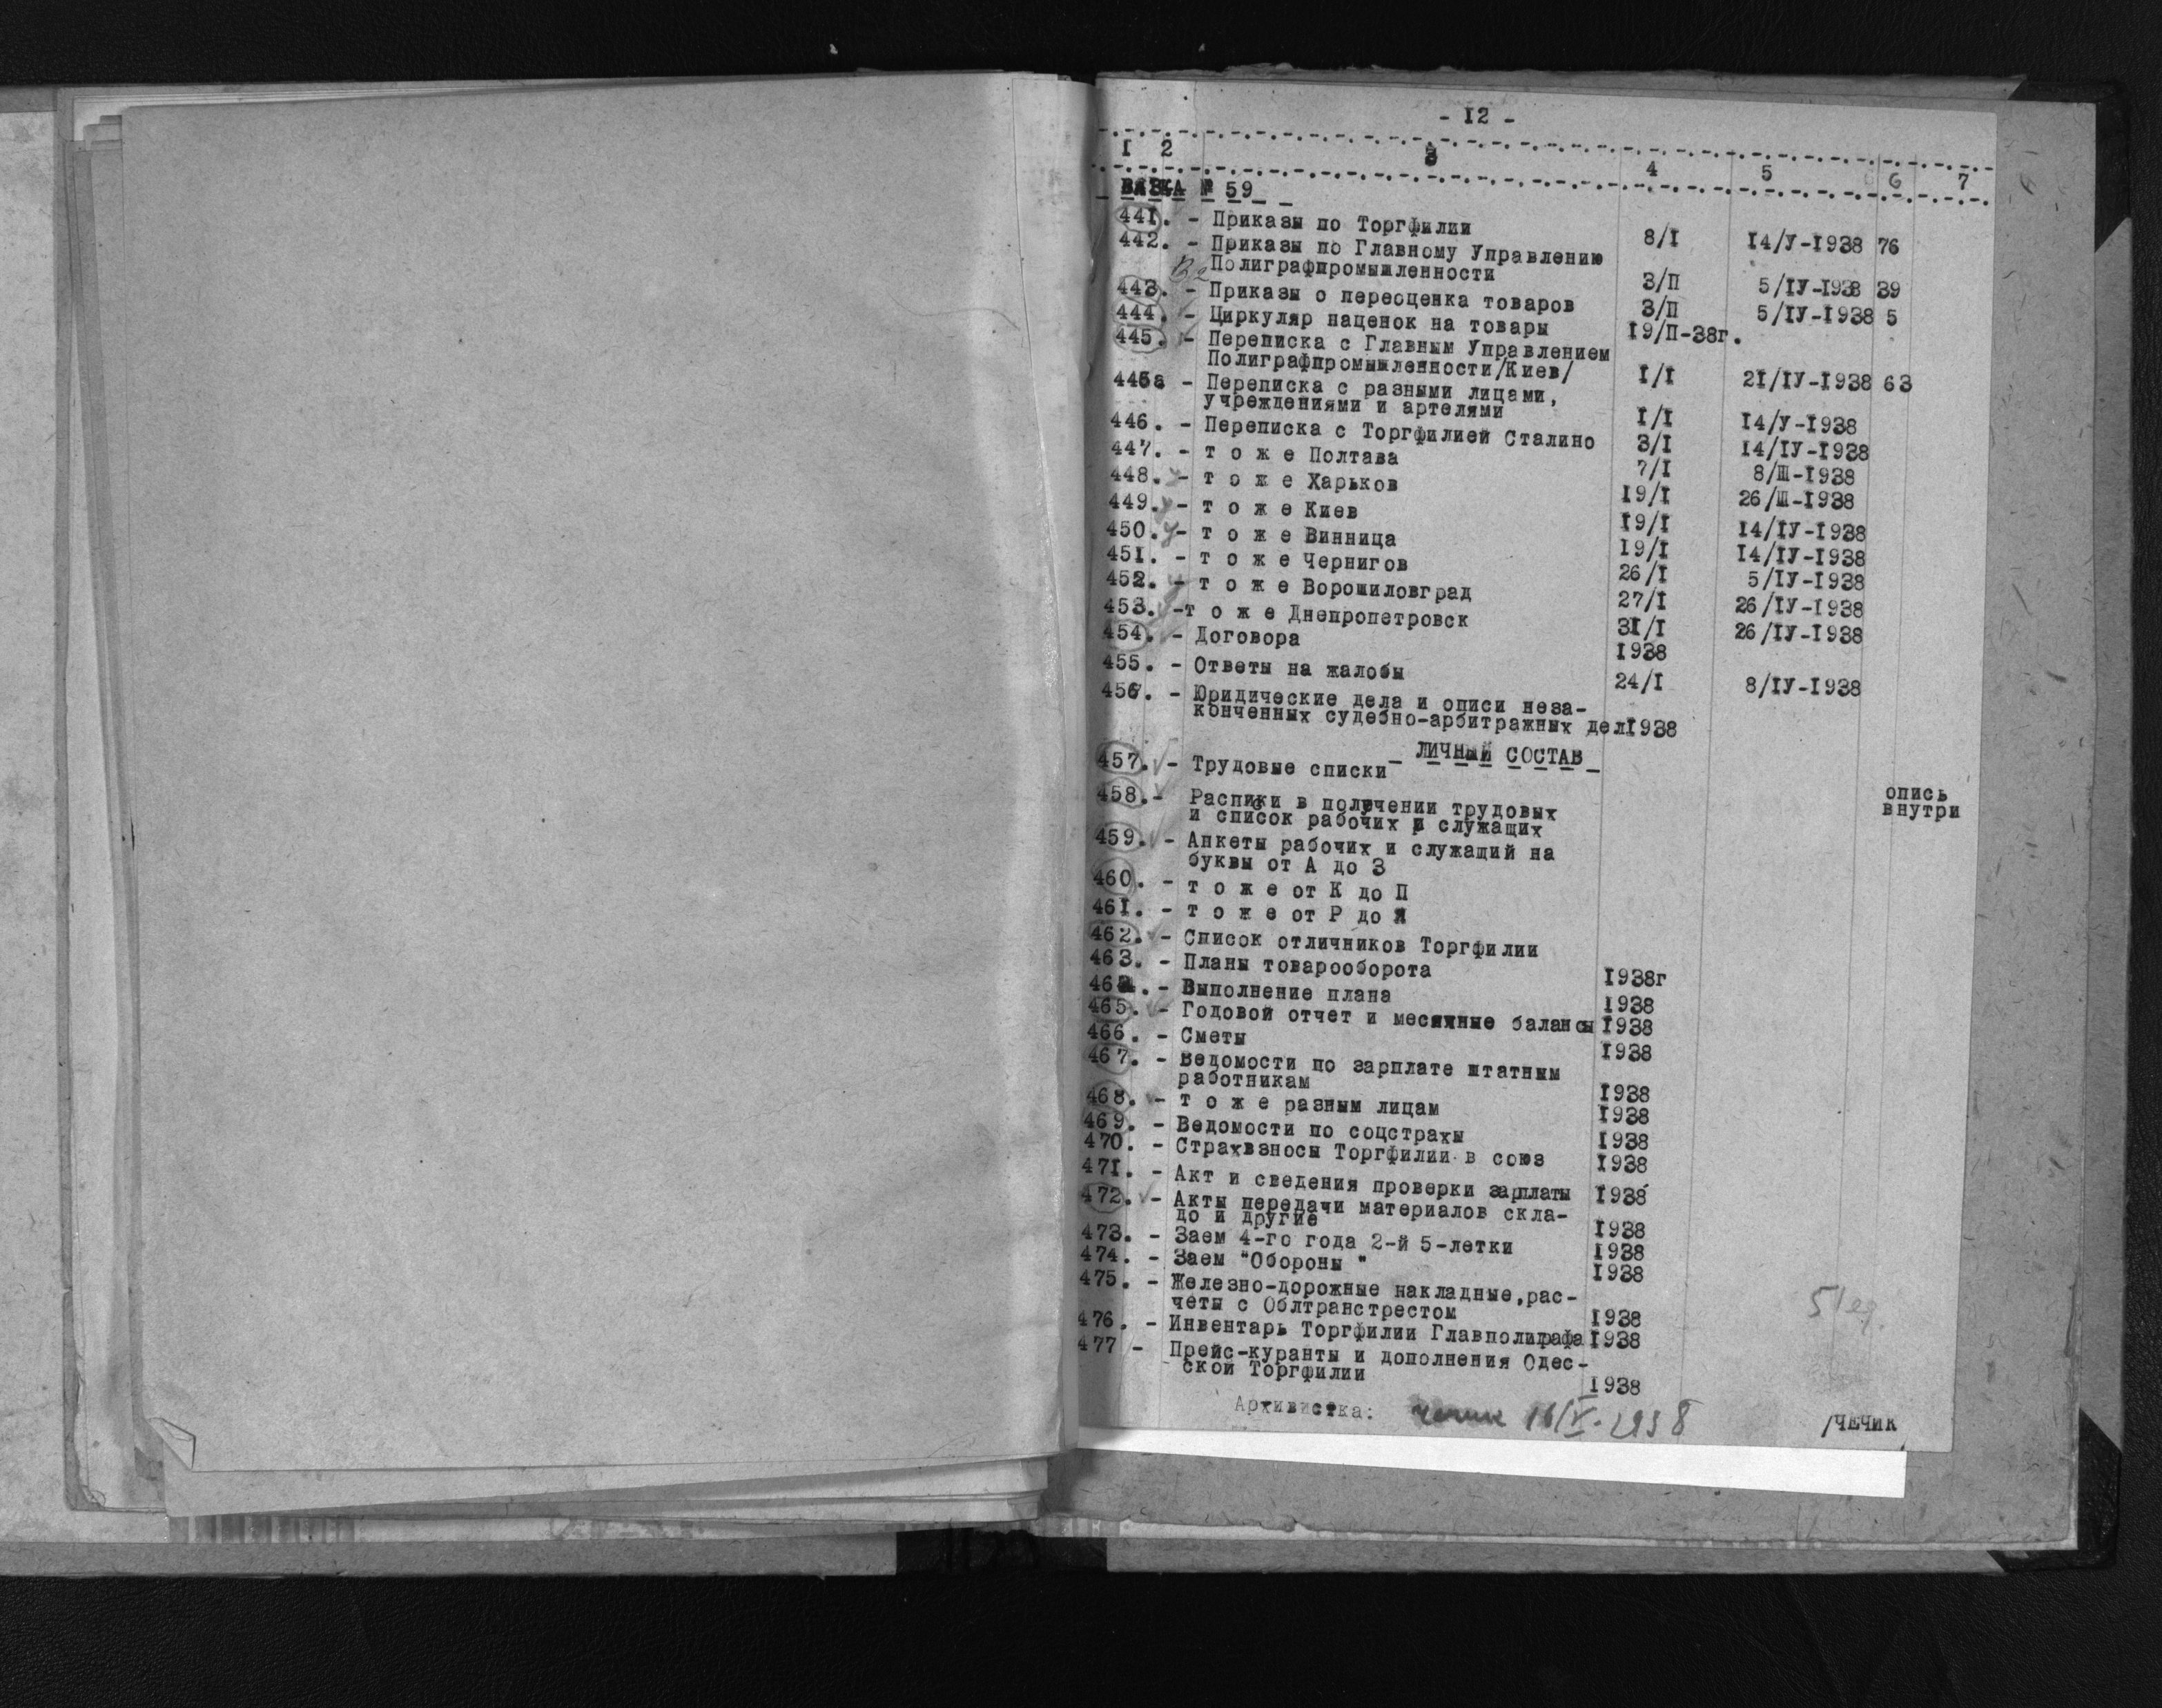 - 12 -
1 2 3 4 5 6 7
ВЯЗКА № 59
441. - Приказы по Торгфилии 8/I 14/У-1938 76
442. - Приказы по Главному Управлению
Полиграфпромышленности 3/П 5/IУ-1938 39
443. - Приказы о переоценка товаров 3/П 5/IУ-1938 5
444. - Циркуляр наценок на товары 19/П-38г.
445. - Переписка с Главным Управлением
Полиграфпромышленности/Киев/ I/I 21/IУ-1938 63
445а - Переписка с разными лицами,
учреждениями и артелями I/I 14/У-1938
446. - Переписка с Торгфилией Сталино 3/I 14/IУ-1938
447. - т о ж е Полтава 7/I 8/Ш-1938
448. - т о ж е Харьков 19/I 26/Ш-1938
449. - т о ж е Киев 19/I 14/IУ-1938
450. - т о ж е Винница 19/I 14/IУ-1938
451. - т о ж е Чернигов 26/I 5/IУ-1938
452. - т о ж е Ворошиловград 27/I 26/IУ-1938
453. -т о ж е Днепропетровск 31/I 26/IУ-1938
454. - Договора 1938
455. - Ответы на жалобы 24/I 8/IУ-1938
456. - Юридические дела и описи неза-
конченных судебно-арбитражных дел1938
ЛИЧНЫЙ СОСТАВ
457. - Трудовые списки
опись
458.- Распики в получении трудовых внутри
и список рабочих и служащих
459. - Анкеты рабочих и служащий на
буквы от А до З
460. - т о ж е от К до П
461. - т о ж е от Р до Я
462. - Список отличников Торгфилии
463. - Планы товарооборота 1938г
464. - Выполнение плана 1938
465. - Годовой отчет и месячные балансы 1938
466. - Сметы 1938
467. - Ведомости по зарплате штатным
работникам 1938
468. - т о ж е разным лицам 1938
469. - Ведомости по соцстрахы 1938
470. - Страхвзносы Торгфилии в союз 1938
471. - Акт и сведения проверки зарплаты 1938
472. - Акты передачи материалов скла-
до и другие 1938
473. - Заем 4-го года 2-й 5-летки 1938
474. - Заем "Обороны " 1938
475. - Железно-дорожные накладные,рас-
четы с Облтранстрестом 1938
51 ед.
476. - Инвентарь Торгфилии Главполиграфа 1938
477 - Прейс-куранты и дополнения Одес-
ской Торгфилии 1938
Архивистка: Чечик 16/V-1938 /ЧЕЧИК